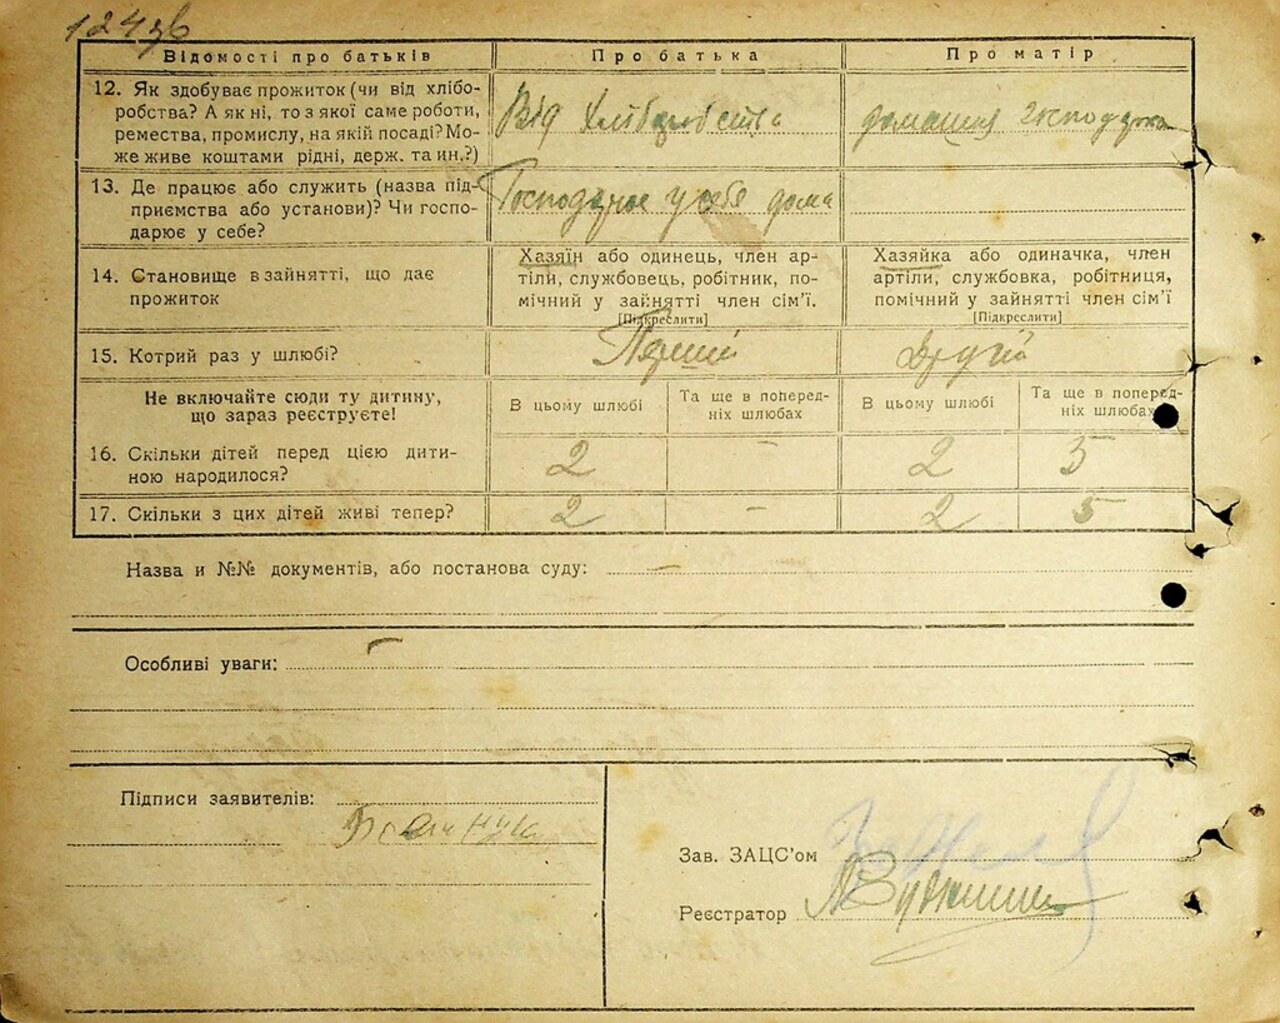 124зв
Відомості про батьків
Про батька
Про матір
12. Як здобуває прожиток (чи від хлібо-
робства? А як ні, то з якої саме роботи,
ремества, промислу, на якій посаді? Мо-
же живе коштами рідні, держ. та ин.?)
Від Хліборобства
домашня господарка
13. Де працює або служить (назва під-
приємства або установи)? Чи госпо-
дарює у себе?
Господарює у себе дома
14. Становище в зайнятті, що дає
прожиток
Хазяїн або одинець, член ар-
тіли, службовець, робітник, по-
мічний у зайнятті член сім'ї.
[Підкреслити]
Хазяйка або одиначка, член
артіли, службовка, робітниця,
помічний у зайнятті член сім'ї
[Підкреслити]
15. Котрий раз у шлюбі?
Перший
Другій
Не включайте сюди ту дитину,
що зараз реєструєте!
В цьому шлюбі
Та ще в поперед-
ніх шлюбах
В цьому шлюбі
Та ще в поперед-
ніх шлюбах
16. Скільки дітей перед цією дити-
ною народилося?
2
–
2
5
17. Скільки з цих дітей живі тепер?
2
–
2
5
Назва и №№ документів, або постанова суду: —
Особливі уваги:
Підписи заявителів:
Зав. ЗАЦС'ом
Реєстратор